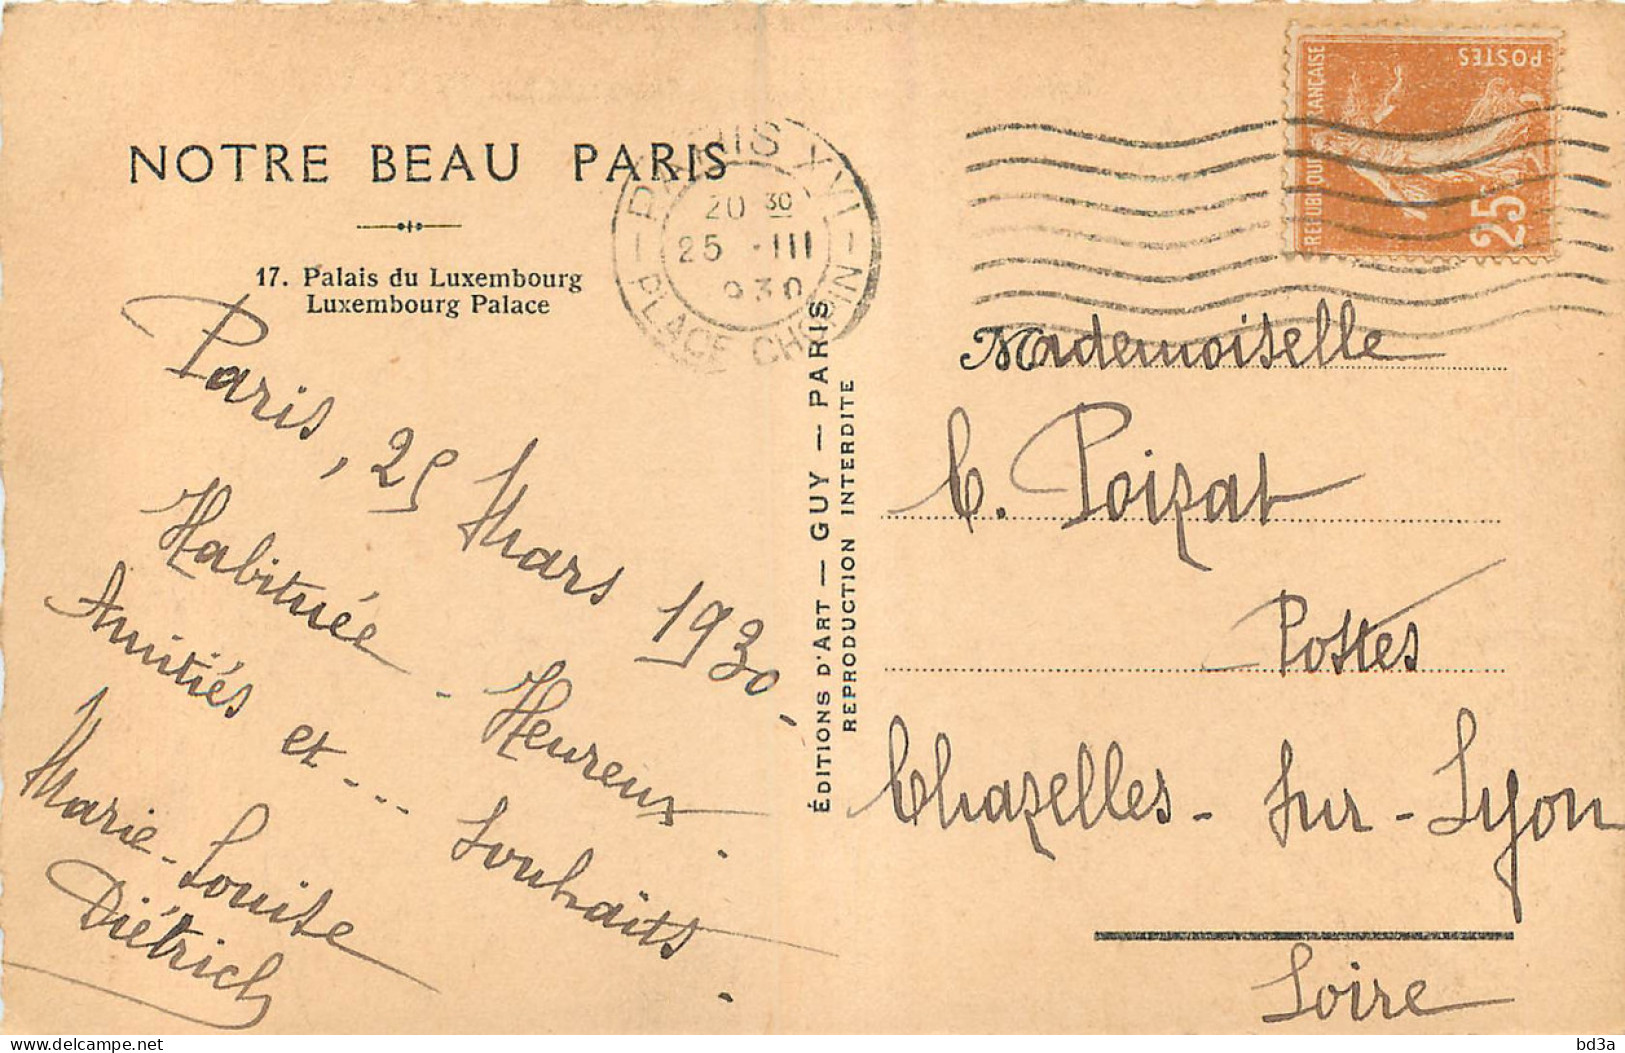 NOTRE BEAU PARIS
17. Palais du Luxembourg
Luxembourg Palace
PARIS XVI
20 30
25 -III
930
PLACE CHOPIN
POSTES
REPUBLIQUE FRANÇAISE
25c
Paris, 25 Mars 1930 -
Habituée - Heureux .
Amitiés et - - - Souhaits .
Marie-Louise
Diétrich
ÉDITIONS D'ART — GUY — PARIS
REPRODUCTION INTERDITE
Mademoiselle
C. Poizat
Postes
Chazelles - sur - Lyon
Loire
bd3a